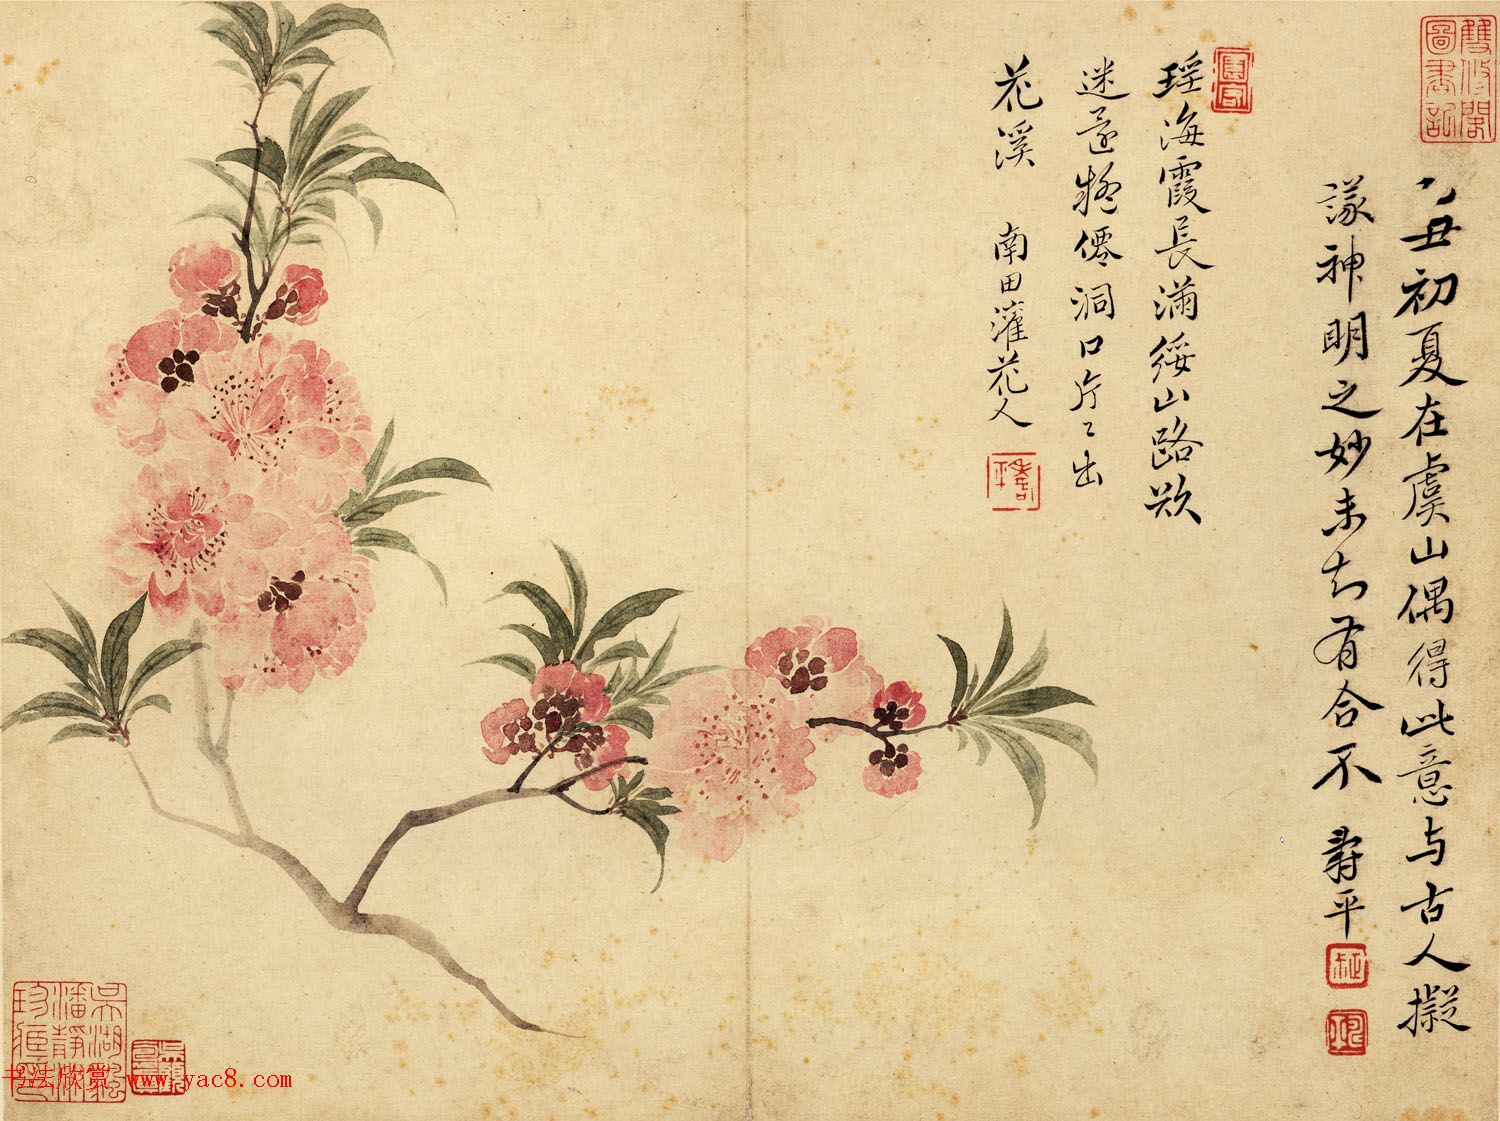 丑初夏在虞山偶得此意与古人擬
議神明之妙未知有合不 壽平
瑶海霞長满綏山路欲
迷還疑僊洞口片〻出
花溪 南田灌花人
雙修閣
圖書記
吳湖颿
潘靜淑
珍藏印
书法欣赏 www.yac8.com